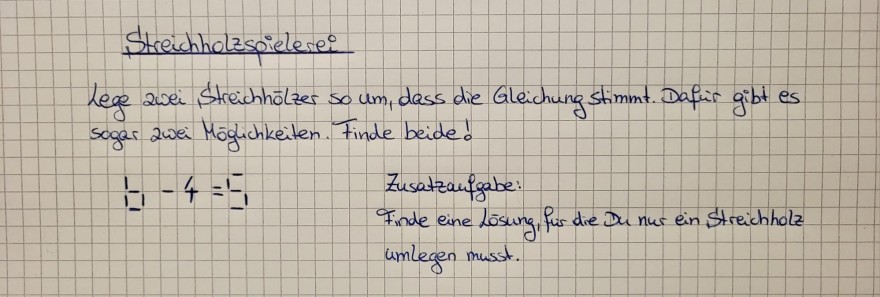 Streichholzspielerei
Lege zwei Streichhölzer so um, dass die Gleichung stimmt. Dafür gibt es
sogar zwei Möglichkeiten. Finde beide!
6 - 4 = 5
Zusatzaufgabe:
Finde eine Lösung, für die Du nur ein Streichholz
umlegen musst.